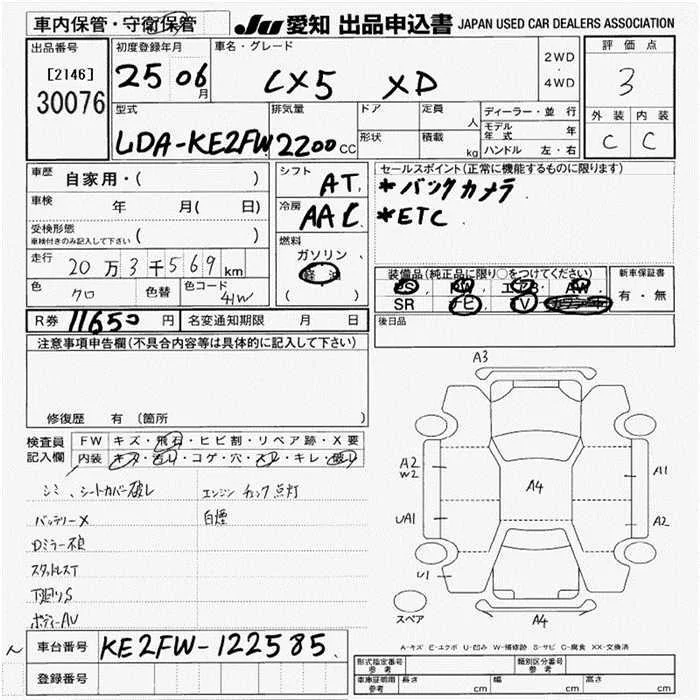 車内保管・守衛保管
JU 愛知 出品申込書 JAPAN USED CAR DEALERS ASSOCIATION
出品番号
[2146]
30076
初度登録年月
25 06 月
車名・グレード
CX5 XD
2WD
・
4WD
評価点
3
外装 内装
C C
型式
LDA-KE2FW
排気量
2200 cc
ドア
形状
定員
人
積載
kg
ディーラー・並行
モデル年式 年
ハンドル 左・右
車歴
自家用・( )
車検
年 月( 日)
受検形態
車検付きのみ記入して下さい ( )
走行
20万3千569km
色
クロ
色替
色コード
41W
シフト
AT
冷房
AAC
燃料
ガソリン
軽油
( )
セールスポイント(正常に機能するものに限ります)
*バックカメラ
*ETC
装備品(純正品に限り○をつけてください)
PS PW エアB AW
SR ナビ TV
新車保証書
有・無
後日品
R券 11650 円
名変通知期限 月 日
注意事項申告欄(不具合内容等は具体的に記入して下さい)
修復歴 有 (箇所 )
検査員
記入欄
FW キズ・飛石・ヒビ割・リペア跡・X要
内装 キズ・汚レ・コゲ・穴・スレ・キレ・破レ
シミ、シートカバー破レ
エンジンチェック点灯
バッテリーX
白煙
Dミラー不良
スタッドレスT
下回りS
ボディーAV
A3
A2
W2
A4
A1
UA1
A2
U1
A4
スペア
A-キズ E-エクボ U-凹み W-補修跡 S-サビ C-腐食 XX-交換済
車台番号
KE2FW-122585
登録番号
形式指定番号
参考
類別区分番号
参考
車庫証明用
参考
長さ cm
幅 cm
高さ cm